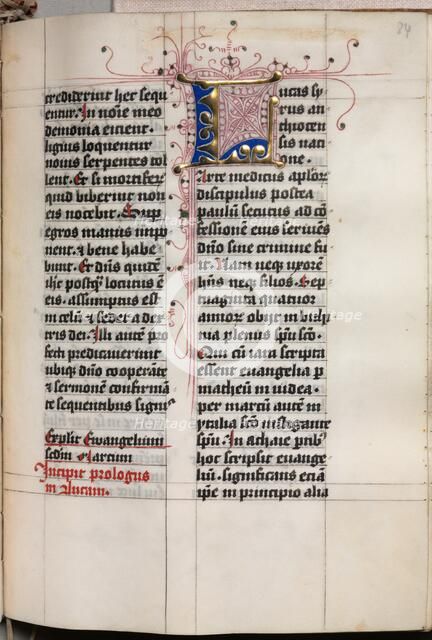 24
crediderint hec sequ
entur. In noīe meo
demonia eicient.
liguis loquentur
nouis serpentes tol
lent. Et si mortifer
quid biberint non
eis nocebit. Sup
egros manus impo
nent. & bene habe
bunt. Et dn̄s quidē
ihc postq̄ locutus ē
eis. assumptus est
in celū & sedet a dex
tris dei. Illi autē pro
fecti predicauerunt
ubiq; dn̄o cooperāte
& sermonē confirmā
te sequentibus signis
Explicit Ewangelium
scdm Marcum
Incipit prologus
in Lucam.
Lucas sy
rus an
thiocen
sis nati
one.
Arte medicus aplor̄
discipulus postea
paulū secutus ad cō
fessionē eius seruiēs
dn̄o sine crimine fu
it. Nam neq; uxorē
hn̄s neq; filios. Sep
tuaginta quatuor
annor̄ obijt in bithi
nia plenus spū sc̄o.
Qui cū iam scripta
essent euangelia p
matheū in iudea.
per marcū autē in
ytalia sc̄o instigante
spū. In achaie ptib;
hoc scripsit euange
liū. significans eciā
ipē in principio alia
heritage
Heritage